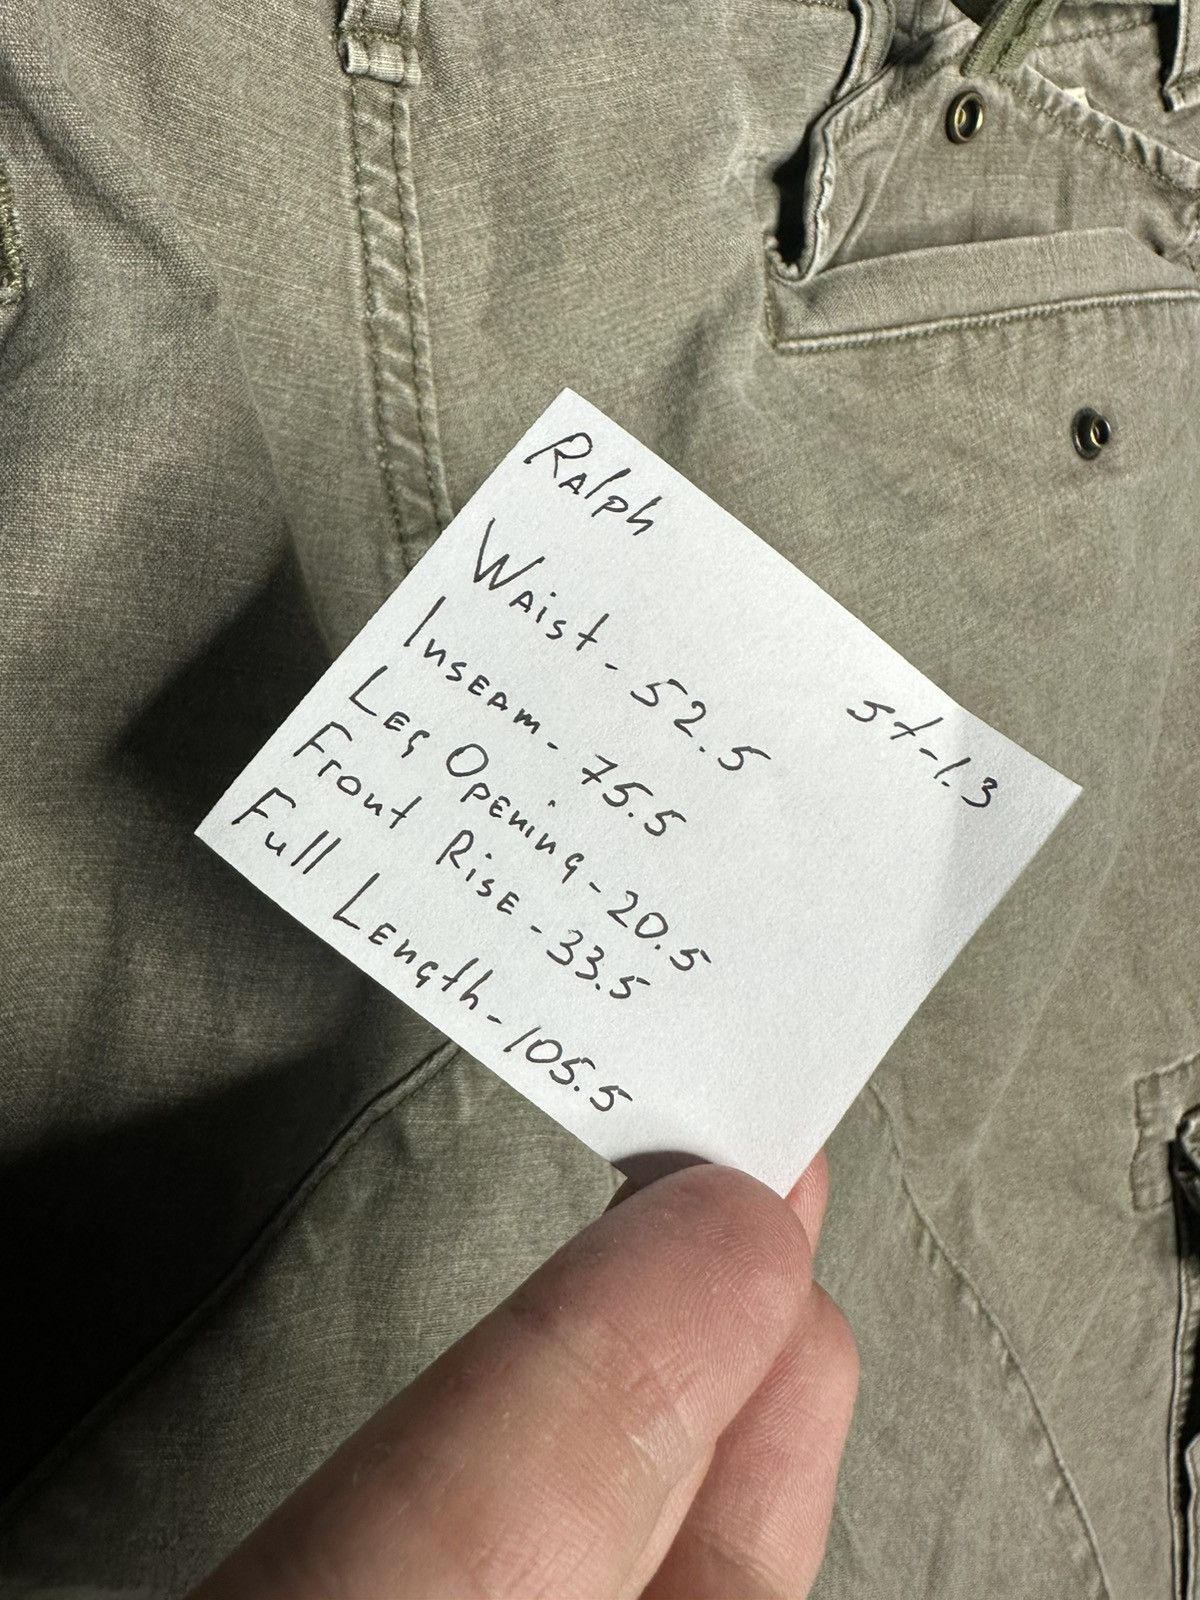 Ralph
Waist - 52.5
Inseam - 75.5
Leg Opening - 20.5
Front Rise - 33.5
Full Length - 105.5
st-1.3